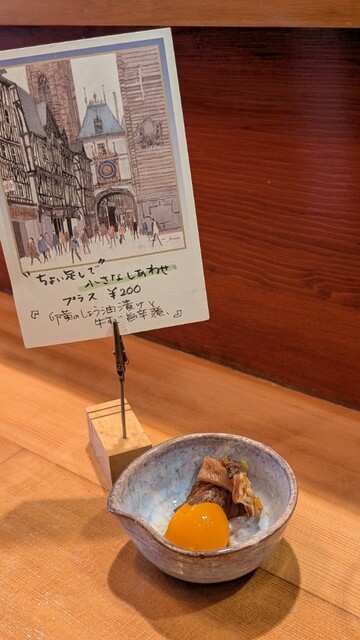 "ちょい足しで"
小さなしあわせ
プラス ¥200
『卵黄のしょう油漬けと
牛すじ旨辛煮』